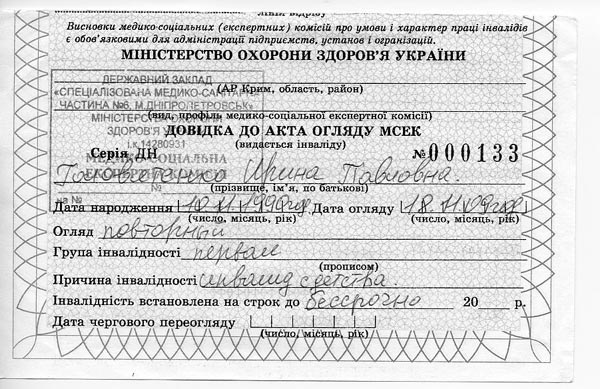 Висновки медико-соціальних (експертних) комісій про умови і характер праці інвалідів
є обов'язковими для адміністрації підприємств, установ і огранізацій.
МІНІСТЕРСТВО ОХОРОНИ ЗДОРОВ'Я УКРАЇНИ
ДЕРЖАВНИЙ ЗАКЛАД
«СПЕЦІАЛІЗОВАНА МЕДИКО-САНІТАРНА
(АР Крим, область, район)
ЧАСТИНА №6, М.ДНІПРОПЕТРОВСЬК»
(вид, профіль медико-соціальної експертної комісії)
МІНІСТЕРСТВО ОХОРОНИ
ЗДОРОВ'Я
ДОВІДКА ДО АКТА ОГЛЯДУ МСЕК
і.к.14280931
(видається інваліду)
Серія ДН №000133
МЕДИКО-СОЦІАЛЬНА
ЕКСПЕРТНА КОМІСІЯ
Ирина Павловна.
(прізвище, ім'я, по батькові)
на №
Дата народження 10.11.1990г Дата огляду 18.11.09г
(число, місяць, рік) (число, місяць, рік)
Огляд повторный
Група інвалідності первая
(прописом)
Причина інвалідності инвалид с детства.
Інвалідність встановлена на строк до бессрочно 20 р.
Дата чергового переогляду
(число, місяць, рік)